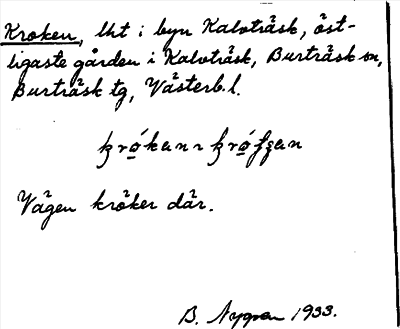 Kroken, lht i byn Kalvträsk, öst-
ligaste gården i Kalvträsk, Burträsk sn,
Burträsk tg, Västerb. l.
Vägen kröker där.
B. Nygren 1933.